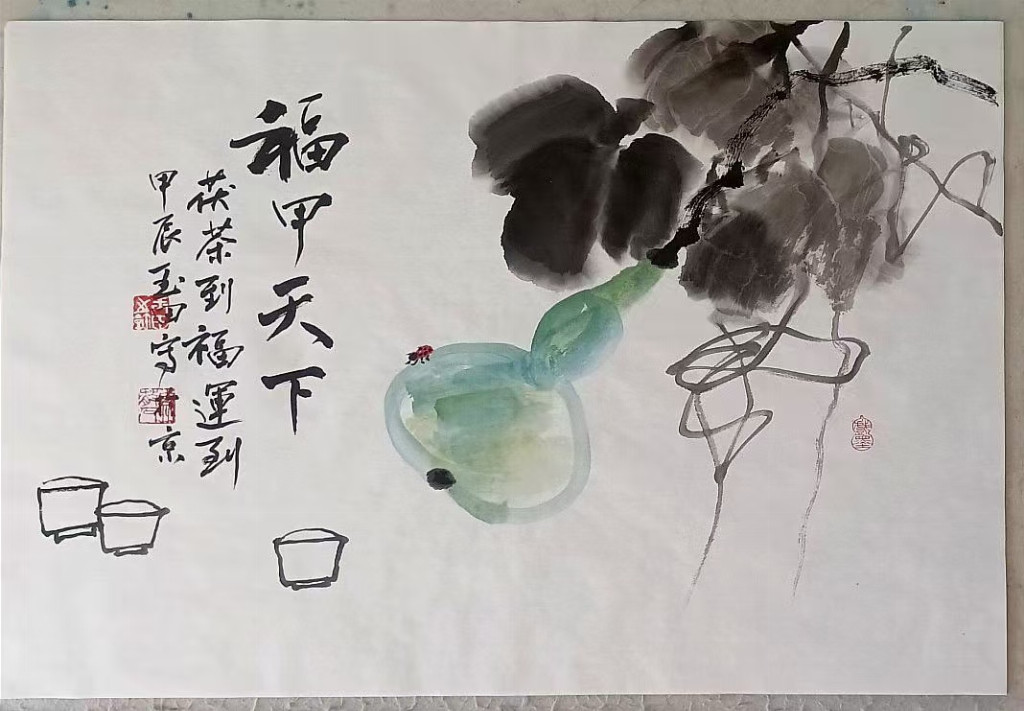 福甲天下
茯茶到福運到
甲辰玉田寫於京